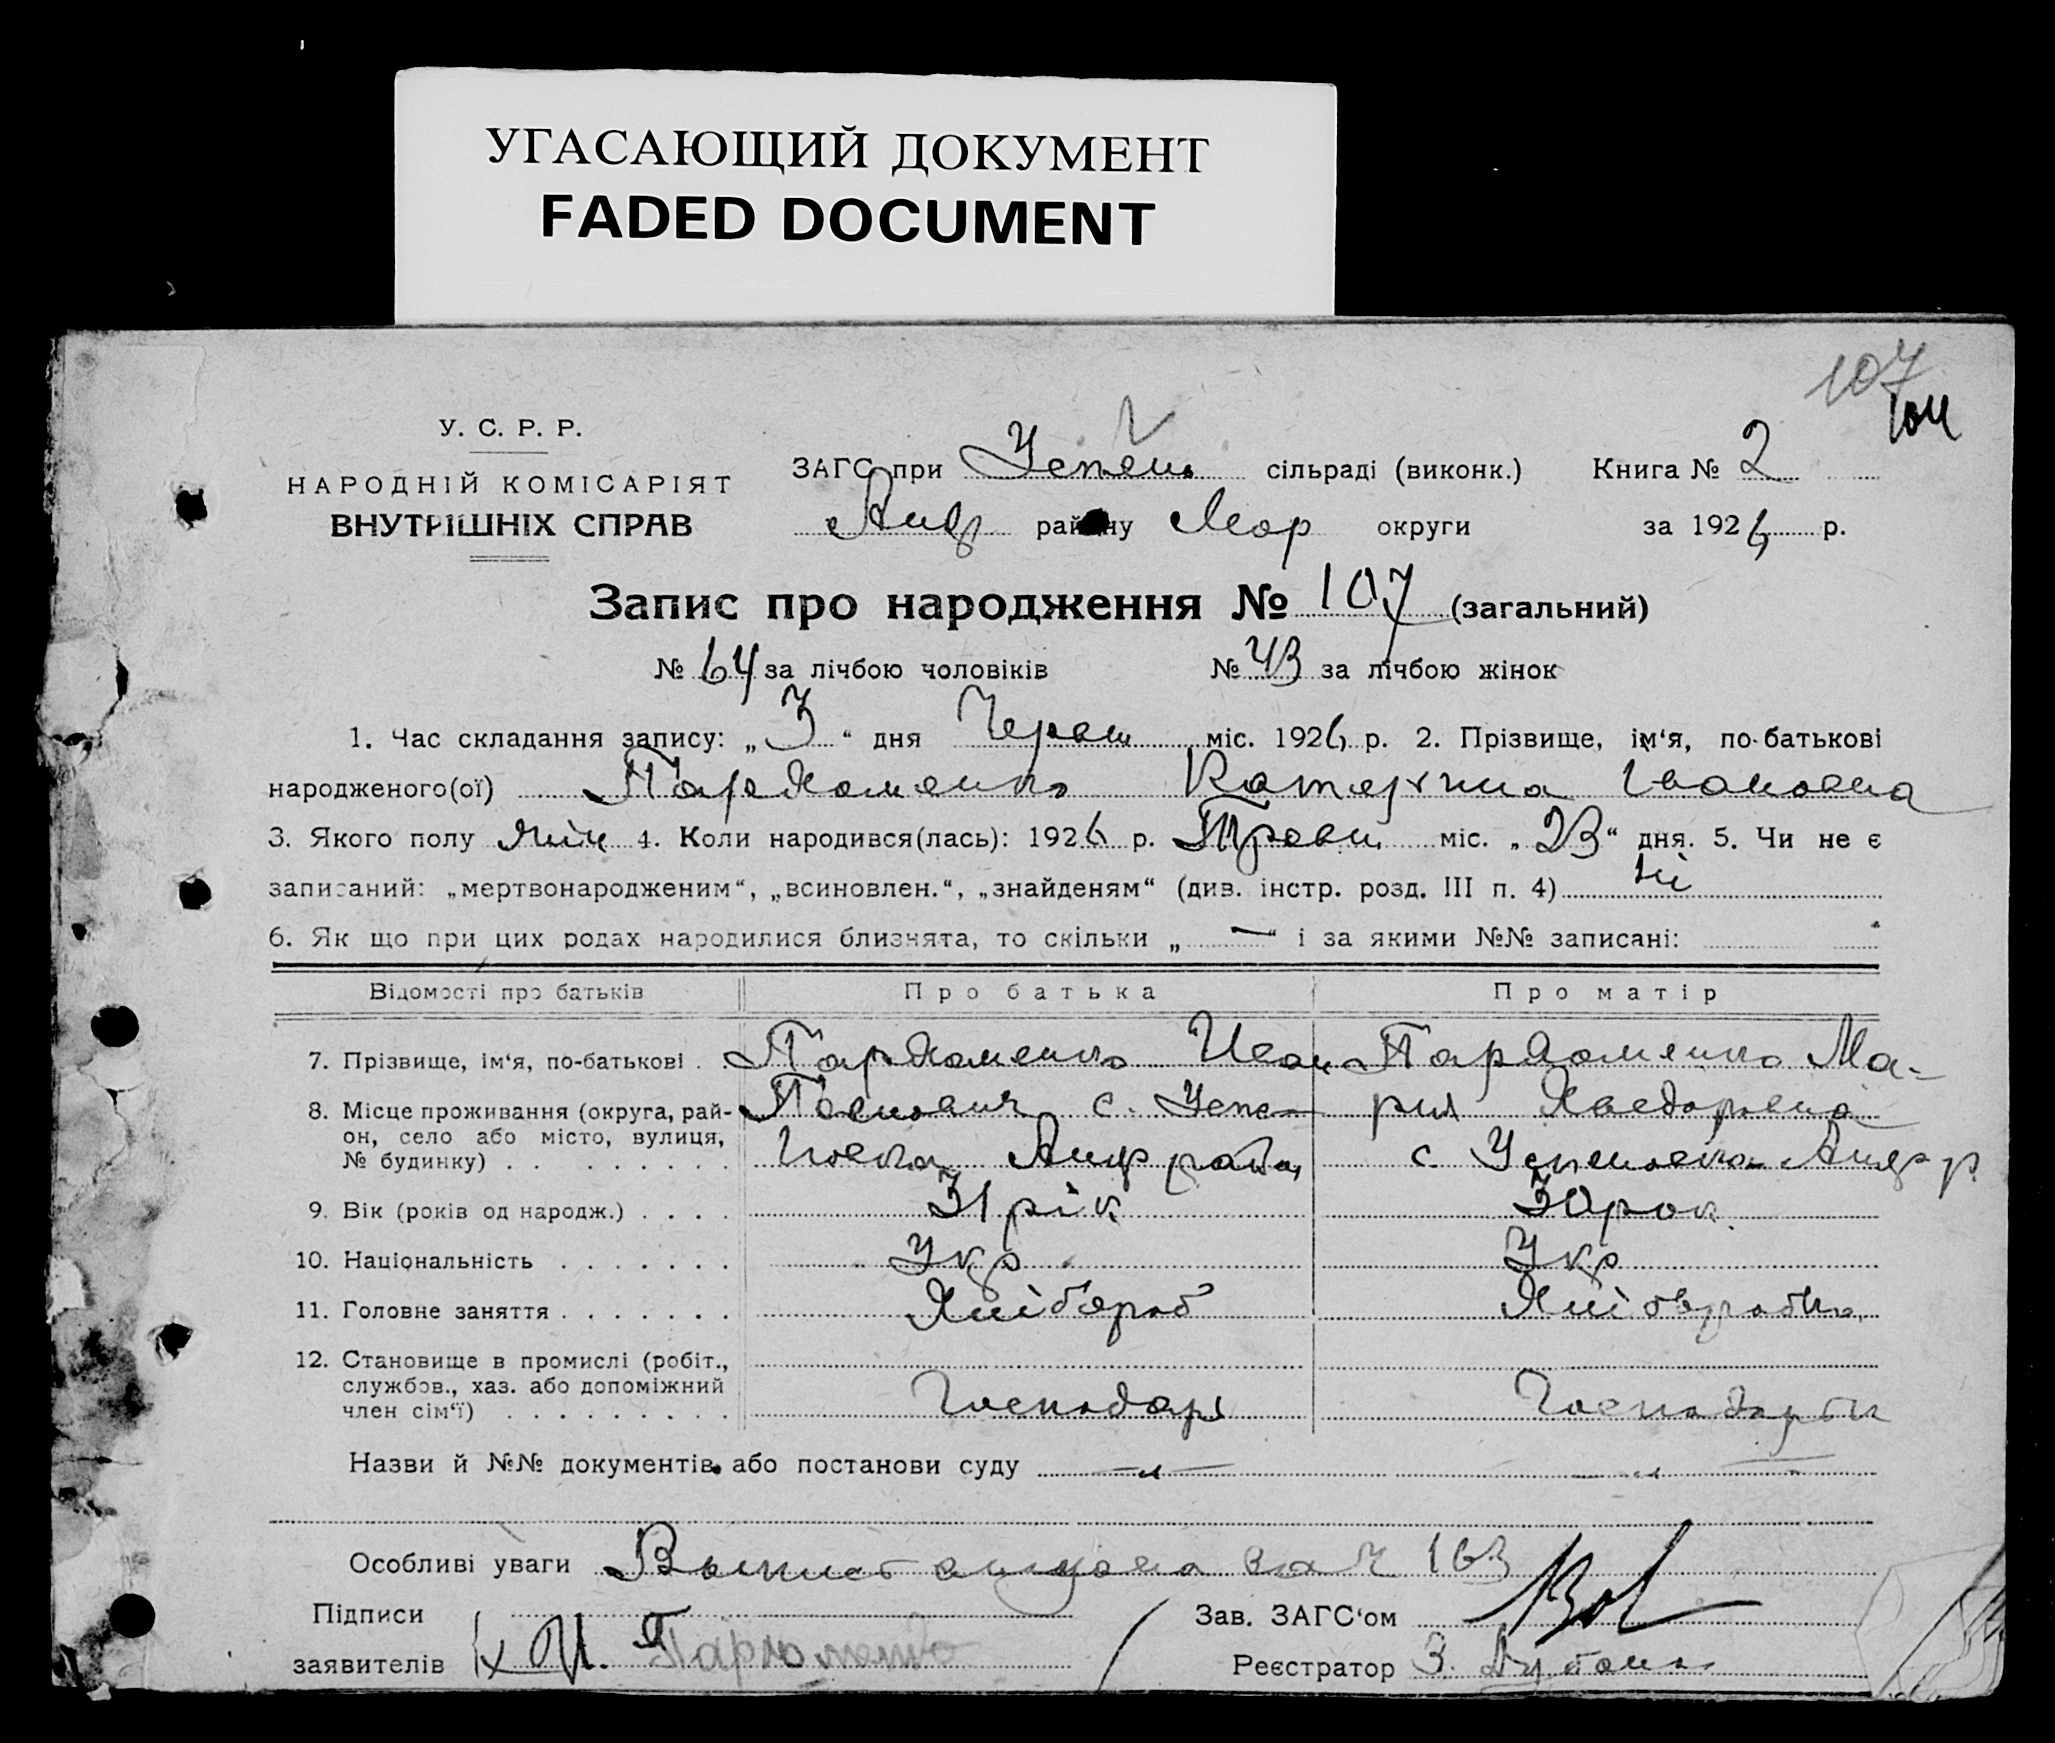 УГАСАЮЩИЙ ДОКУМЕНТ
FADED DOCUMENT
107
У. С. Р. Р.
НАРОДНІЙ КОМІСАРІЯТ
ВНУТРІШНІХ СПРАВ
ЗАГС при Успен. сільраді (виконк.) Книга № 2
району округи за 1926 р.
Запис про народження № 107 (загальний)
№ 64 за лічбою чоловіків № 43 за лічбою жінок
1. Час складання запису: „3“ дня Червн міс. 1926 р. 2. Прізвище, ім‘я, по-батькові
народженого(ої) Пархоменко Катерина Івановна
3. Якого полу жін 4. Коли народився(лась): 1926 р. Травн міс. „23“ дня. 5. Чи не є
записаний: „мертвонародженим“, „всиновлен.“, „знайденям“ (див. інстр. розд. III п. 4) ні
6. Як що при цих родах народилися близнята, то скільки „—“ і за якими №№ записані:
Відомості про батьків Про батька Про матір
7. Прізвище, ім‘я, по-батькові . . Пархоменко Иван Пархоменко Ма-
8. Місце проживання (округа, рай- с. Успе- рия
он, село або місто, вулиця,
№ будинку) . . . . . . . . . новка Андр с Успеновка Андр р
9. Вік (років од народж.) . . . . 31 рік 30 рок
10. Національність . . . . . . . Укр Укр
11. Головне заняття . . . . . . . Хлібороб
12. Становище в промислі (робіт.,
службов., хаз. або допоміжний
член сім‘ї) . . . . . . . . . Господарь
Назви й №№ документів або постанови суду —„— „
Особливі уваги Выпись за № 163
Підписи Зав. ЗАГС‘ом
заявителів И. Пархоменко Реєстратор З.